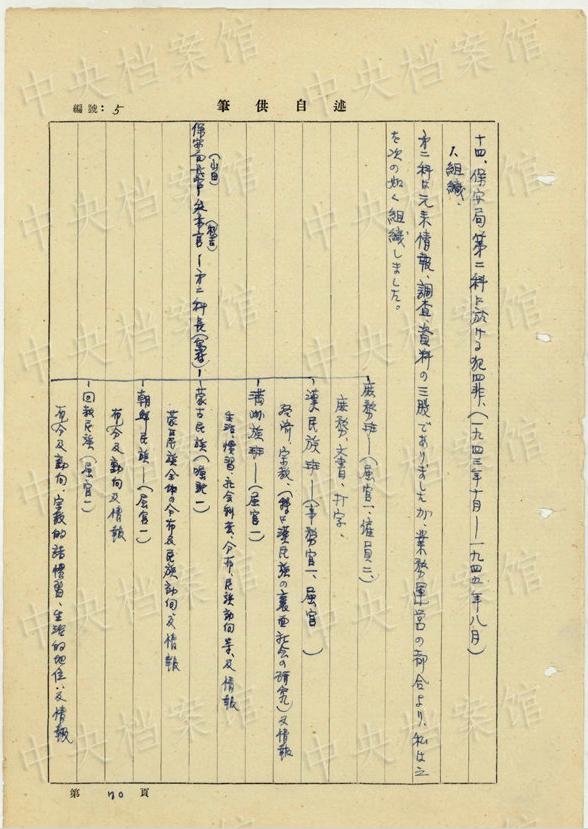 編號：5
筆供自述
十四、保安局第二科に於ける犯罪、(一九四三年十月——一九四五年八月)
1、組織、
第二科は元来情報、調査、資料の三股でありましたが、業務運営の都合より、私は之
を次の如く組織しました。
庶務班—(属官一、雇員二、)
庶務、文書、打字、
漢民族班—(事務官一、属官 )
経済、宗教、(特に漢民族の裏面社会の研究)及情報
満洲族班—(属官一)
生活、慣習、社会 分布、民族動向等、及情報
蒙古民族(嘱託一)
蒙古民族全部の分布及民族動向、及情報
朝鮮民族—(属官一)
分布及動向及情報
回教民族(属官一)
分布及動向、宗教的諸慣習、生活的地位、及情報
保安局長官
(山田)
参事官
(秋吉)
—第二科長
第 70 頁
中央档案馆